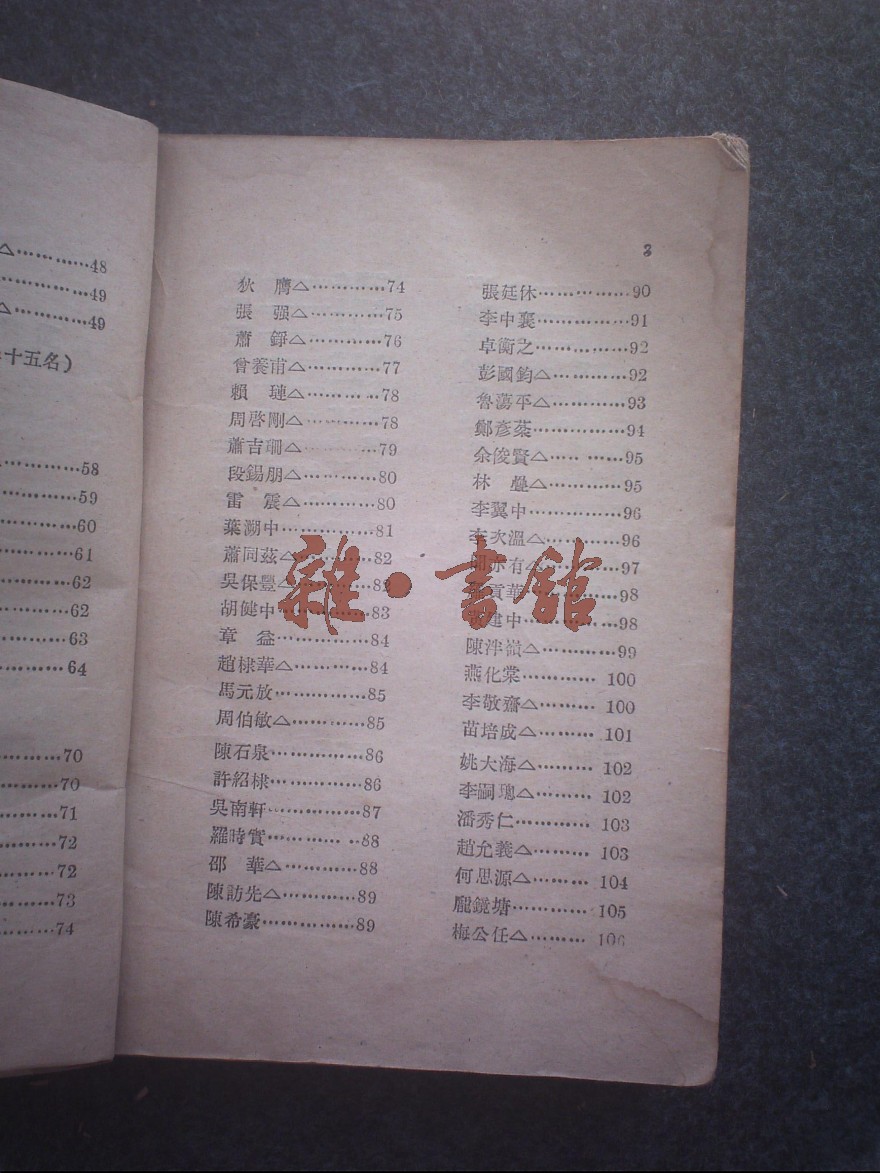 △…………48
…………49
△…………49
十五名)
…………58
…………59
…………60
…………61
…………62
…………62
…………63
…………64
…………70
…………70
…………71
…………72
…………72
…………73
…………74
3
狄　膺△…………74
張　强△…………75
蕭　錚△…………76
曾養甫△…………77
賴　璉△…………78
周啓剛△…………78
蕭吉珊△…………79
段錫朋△…………80
雷　震△…………80
葉溯中……………81
蕭同茲△…………82
吳保豐△…………82
胡健中……………83
章　益……………84
趙棣華△…………84
馬元放……………85
周伯敏△…………85
陳石泉……………86
許紹棣……………86
吳南軒……………87
羅時實……………88
邵　華△…………88
陳訪先△…………89
陳希豪……………89
張廷休……………90
李中襄……………91
卓衡之……………92
彭國鈞△…………92
魯蕩平△…………93
鄭彥棻……………94
余俊賢△…………95
林　疊△…………95
李翼中……………96
李次溫△…………96
亦有△…………97
貢華……………98
建中……………98
陳泮嶺△…………99
燕化棠…………100
李敬齋△………100
苗培成△………101
姚大海△………102
李嗣璁△………102
潘秀仁…………103
趙允義△………103
何思源△………104
龐鏡塘…………105
梅公任△………106
雜·書館